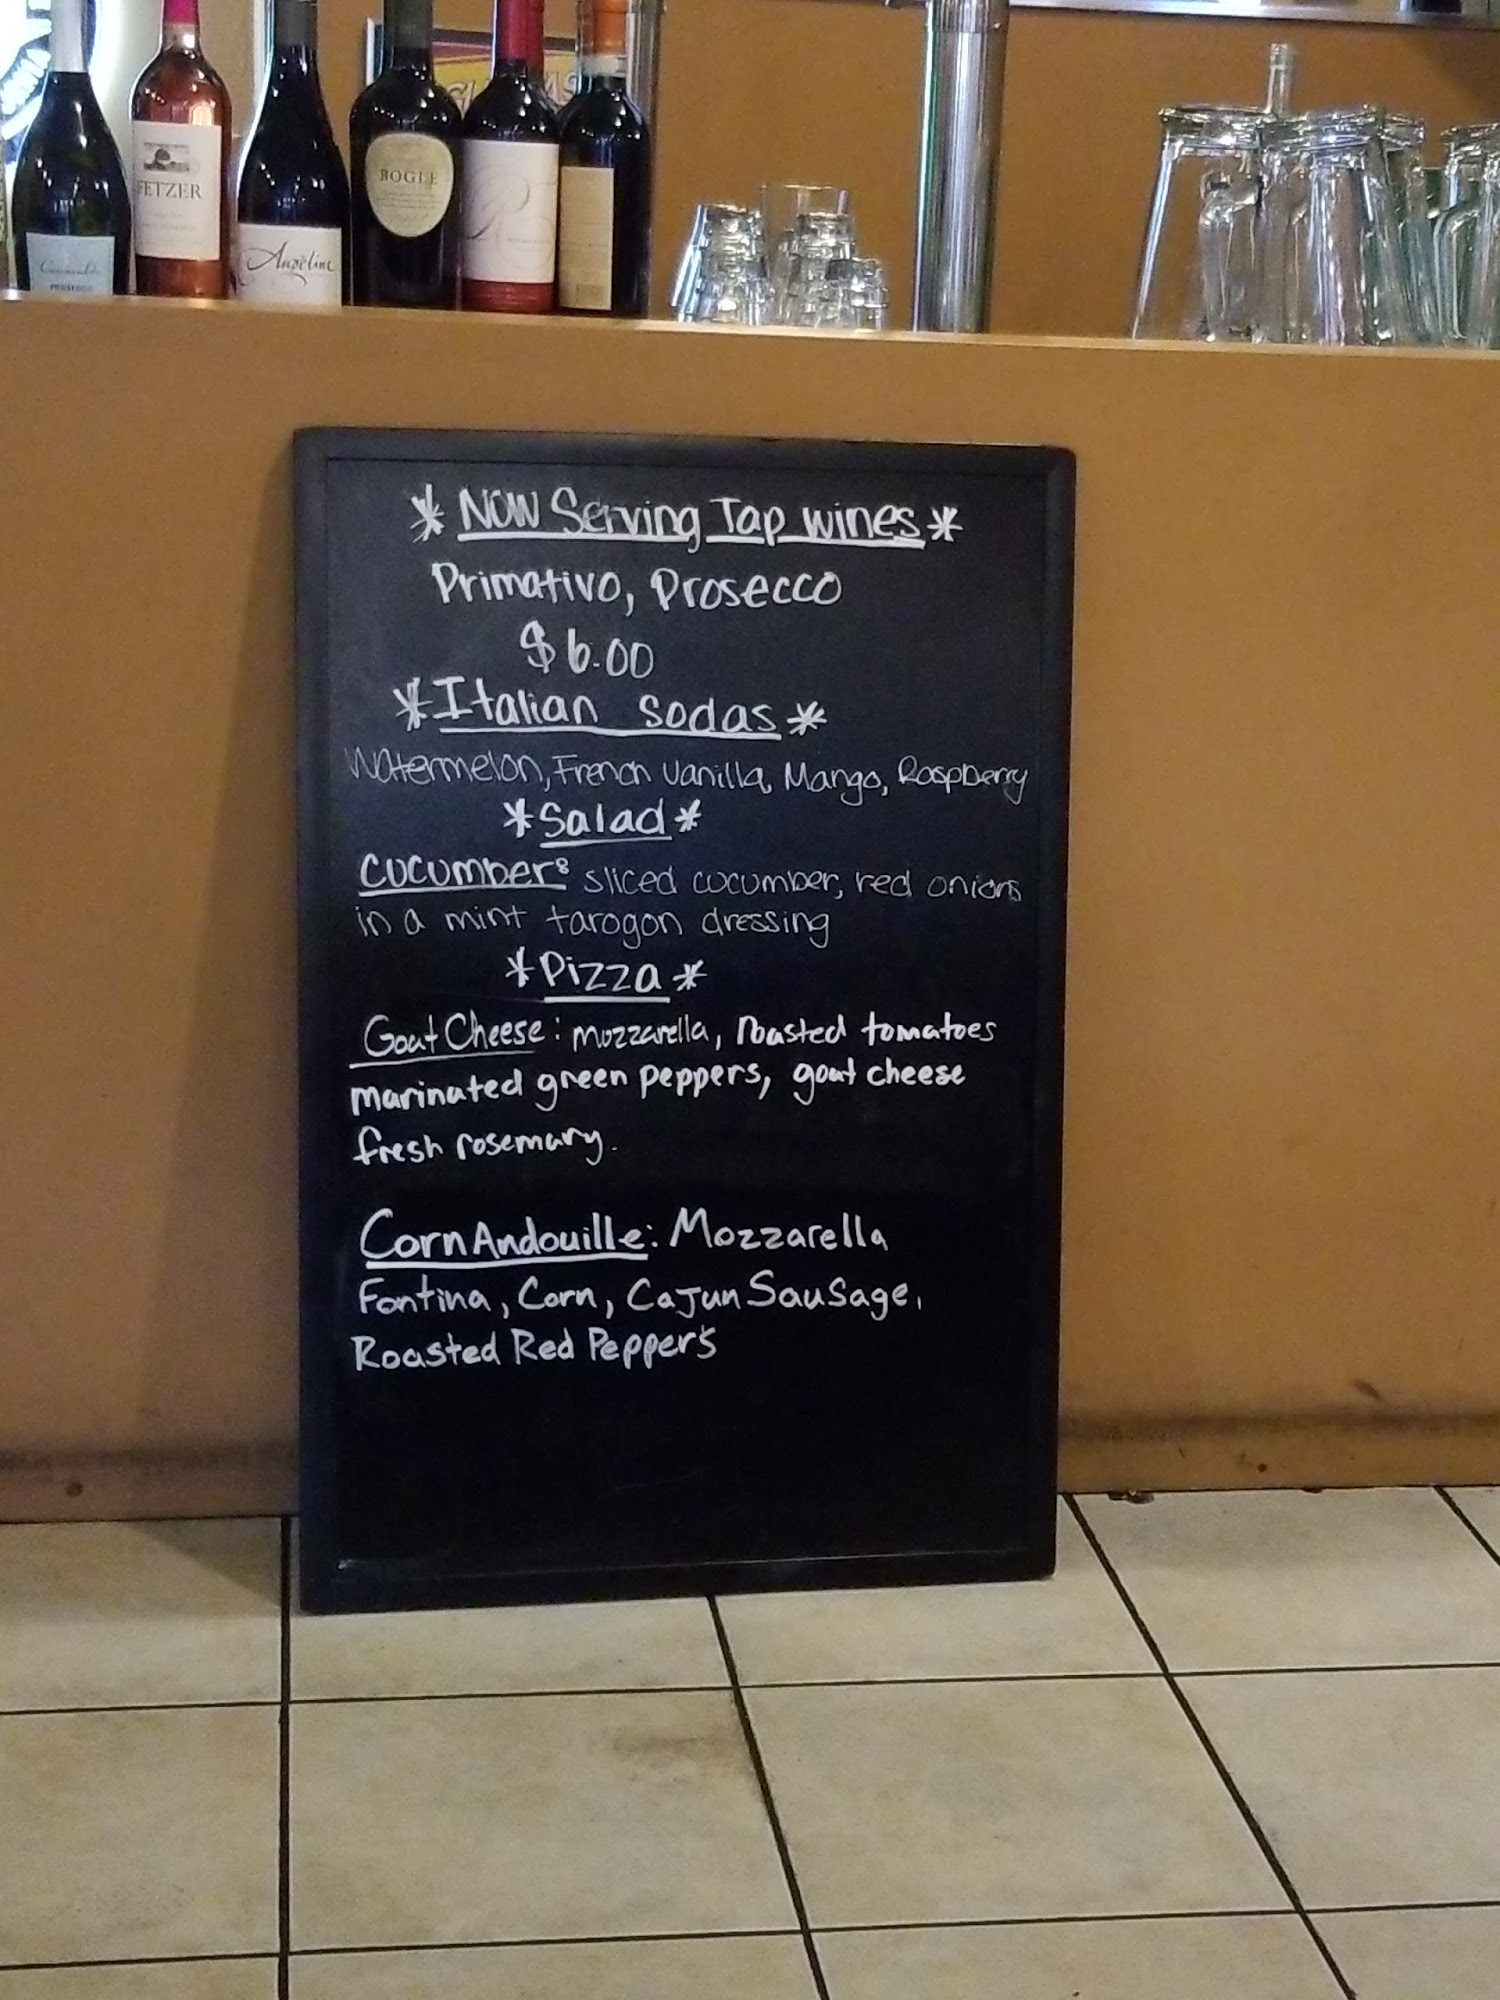 FETZER
Angeline
BOGLE
R
PROSECCO
* NOW Serving Tap wines *
Primativo, Prosecco
$6.00
* Italian sodas *
Watermelon, French Vanilla, Mango, Raspberry
* Salad *
Cucumber: sliced cucumber, red onions
in a mint tarogon dressing
* Pizza *
Goat Cheese: mozzarella, roasted tomatoes
marinated green peppers, goat cheese
fresh rosemary.
Corn Andouille: Mozzarella
Fontina, Corn, Cajun Sausage,
Roasted Red Peppers